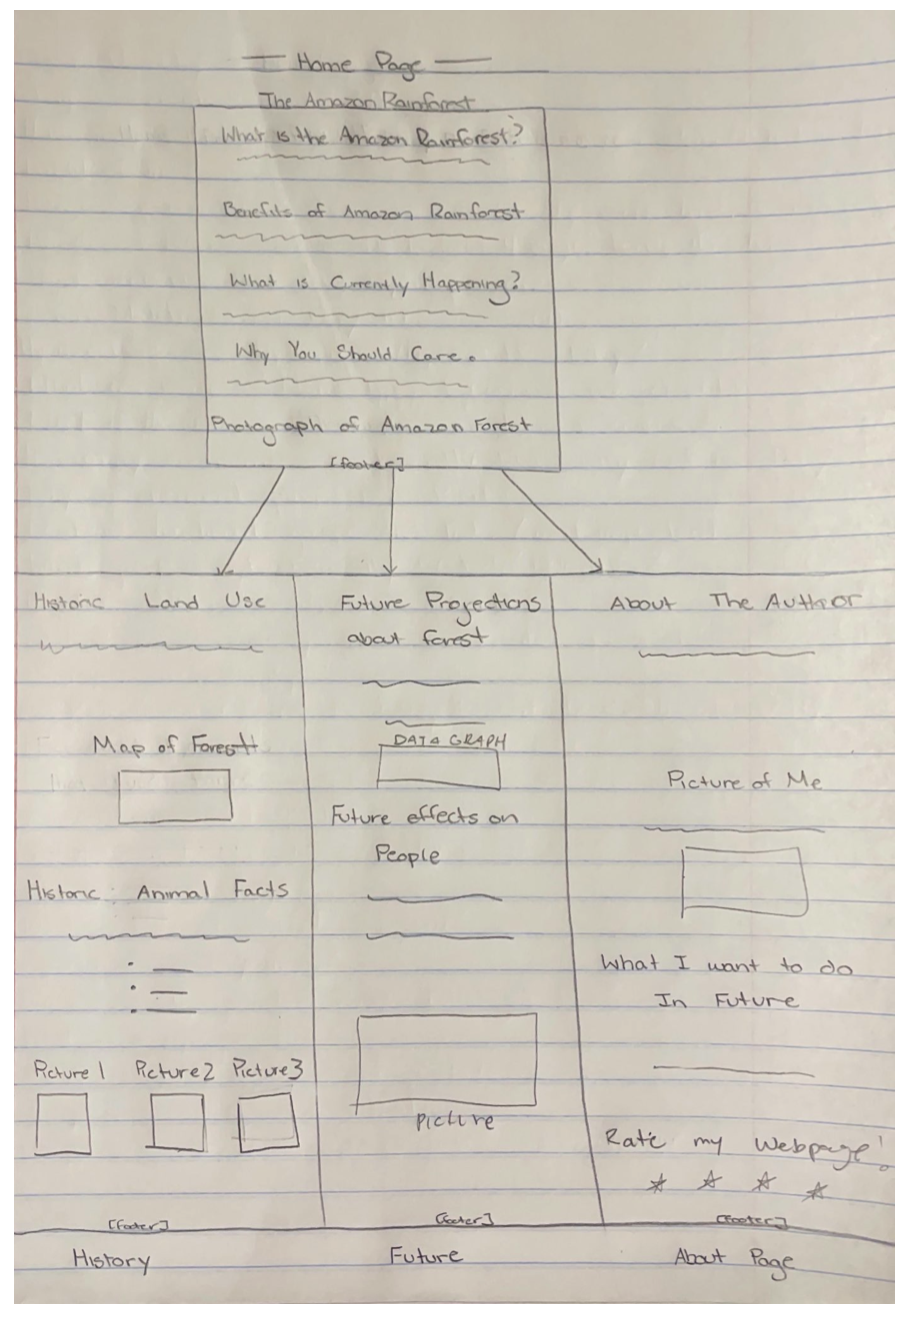 Home Page
The Amazon Rainforest
What is the Amazon Rainforest?
Benefits of Amazon Rainforest
What is Currently Happening?
Why You Should Care.
Photograph of Amazon Forest
[footer]
Historic Land Use
Map of Forest
Historic Animal Facts
Picture 1 Picture 2 Picture 3
[footer]
History
Future Projections
about forest
DATA GRAPH
Future effects on
People
Picture
[footer]
Future
About The Author
Picture of Me
What I want to do
In Future
Rate my Webpage!
[footer]
About Page